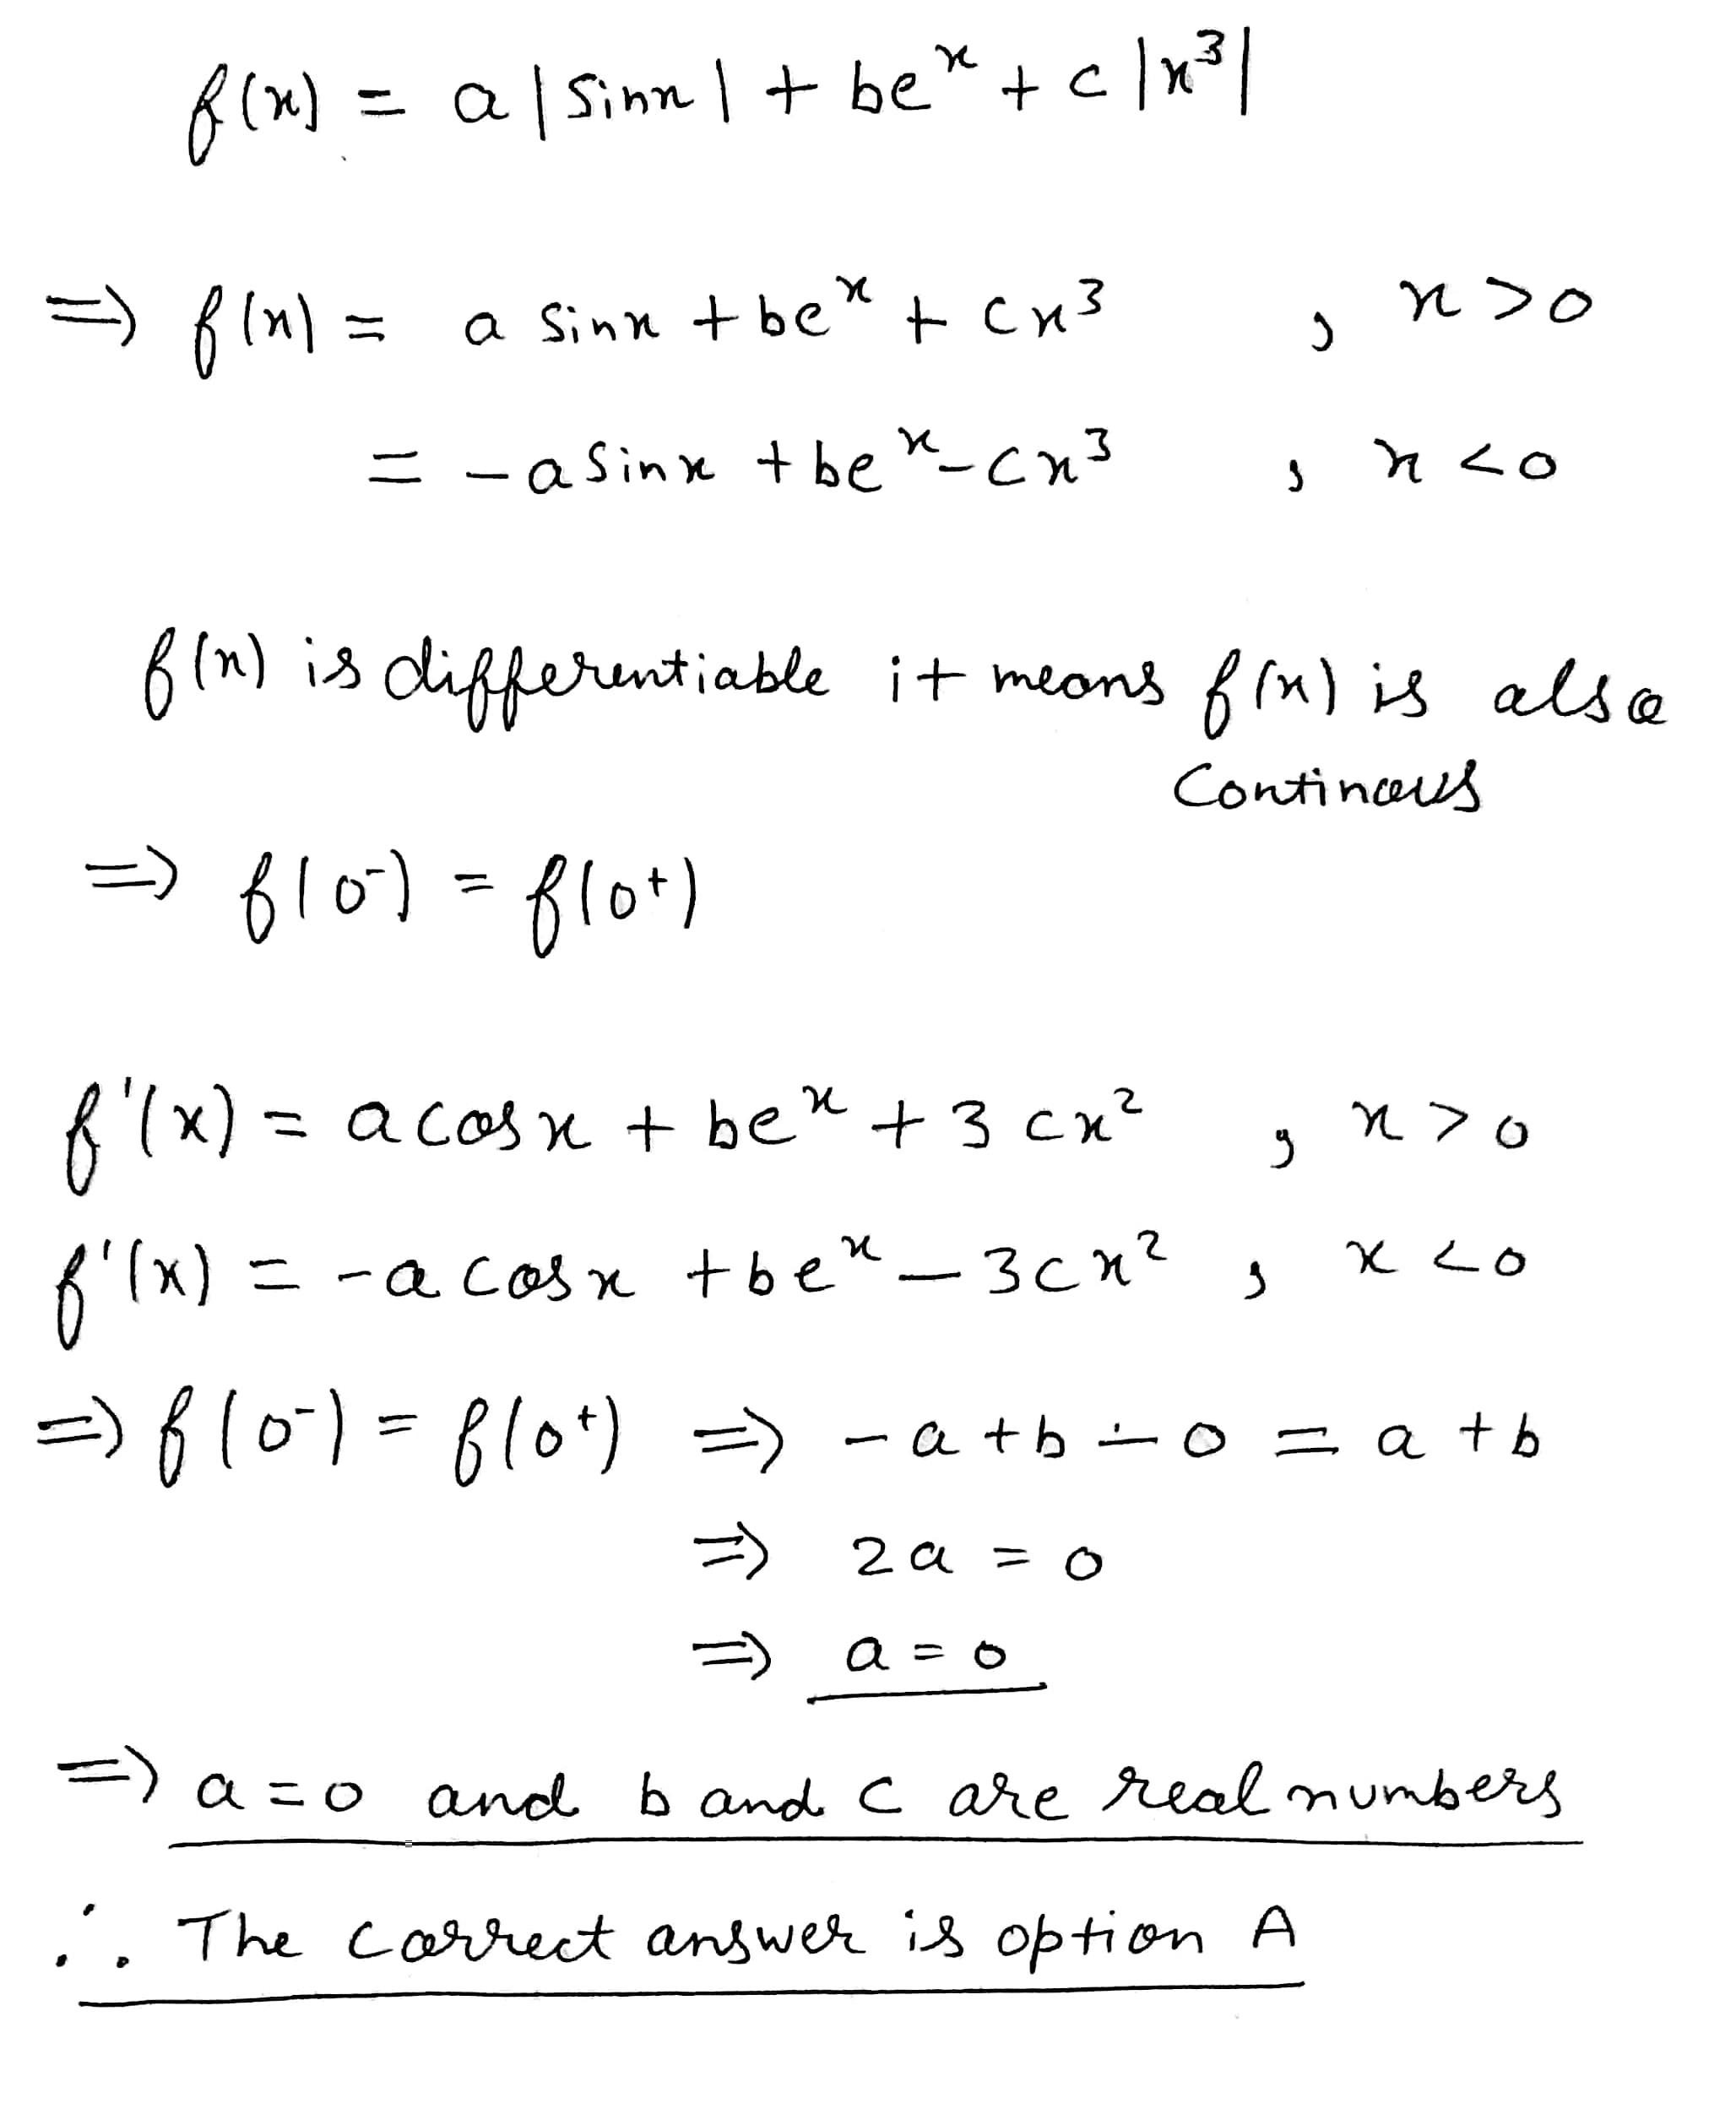 f(x) = a |sinx| + be^x + c |x^3|
=> f(x) = a sinx + be^x + cx^3 , x > 0
= - a sinx + be^x - cx^3 , x < 0
f(x) is differentiable it means f(x) is also
Continous
=> f(0^-) = f(0^+)
f'(x) = a cosx + be^x + 3 cx^2 , x > 0
f'(x) = - a cosx + be^x - 3cx^2 , x < 0
=> f(0^-) = f(0^+) => - a + b - 0 = a + b
=> 2a = 0
=> a = 0
=> a = 0 and b and c are real numbers
∴ The correct answer is option A